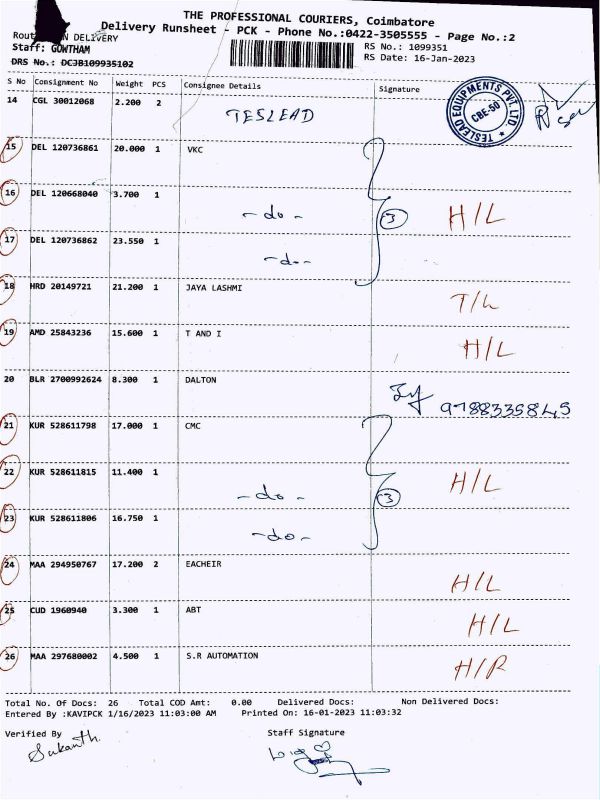 THE PROFESSIONAL COURIERS, Coimbatore
Delivery Runsheet - PCK - Phone No.:0422-3505555 - Page No.:2
DELIVERY
Staff: GOWTHAM
DRS No.: DCJB109935102
RS No.: 1099351
RS Date: 16-Jan-2023
S No Consignment No Weight PCS Consignee Details Signature
14 CGL 30012068 2.200 2 TESLEAD
TESLEAD EQUIPMENTS PVT. LTD
CBE-50
15 DEL 120736861 20.000 1 VKC
16 DEL 120668040 3.700 1 -do- 3 H/L
17 DEL 120736862 23.550 1 -do-
18 HRD 20149721 21.200 1 JAYA LASHMI T/L
19 AMD 25843236 15.600 1 T AND I H/L
20 BLR 2700992624 8.300 1 DALTON 9788335845
21 KUR 528611798 17.000 1 CMC
22 KUR 528611815 11.400 1 -do- 3 H/L
23 KUR 528611806 16.750 1 -do-
24 MAA 294950767 17.200 2 EACHEIR H/L
25 CUD 1960940 3.300 1 ABT H/L
26 MAA 297680002 4.500 1 S.R AUTOMATION H/R
Total No. Of Docs: 26 Total COD Amt: 0.00 Delivered Docs: Non Delivered Docs:
Entered By :KAVIPCK 1/16/2023 11:03:00 AM Printed On: 16-01-2023 11:03:32
Verified By Staff Signature
Sukanth.